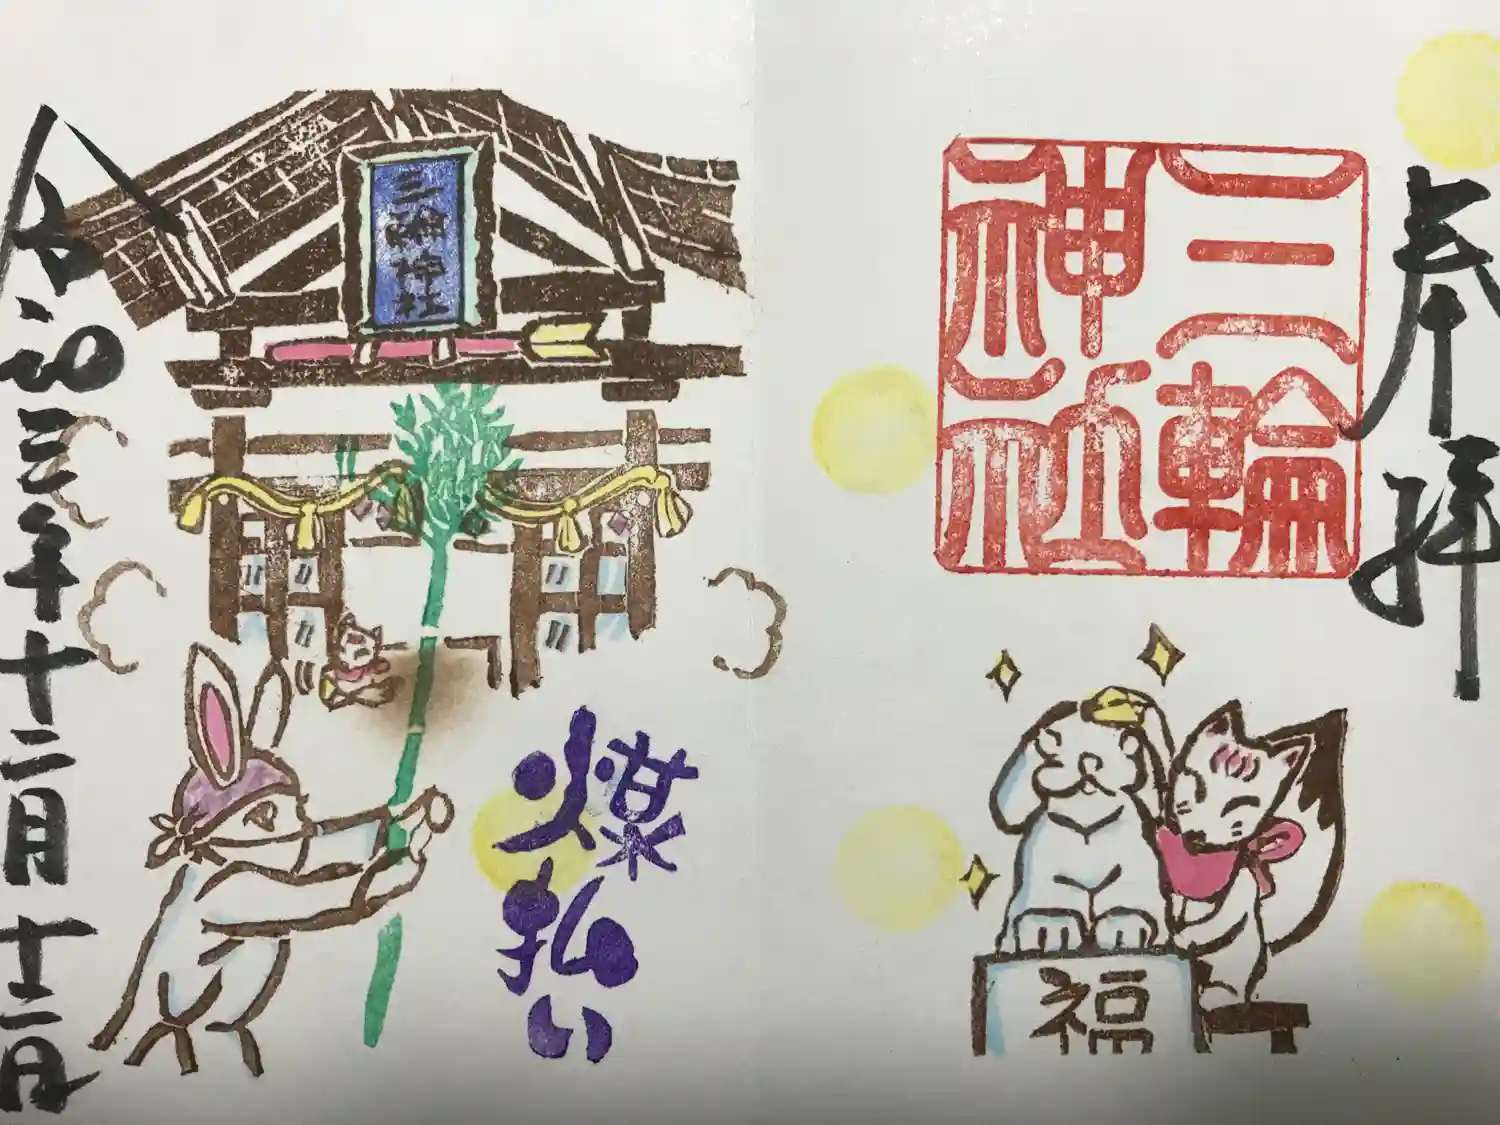 奉拝
三輪
神社
福
煤
払い
三輪神社
令和三年十二月十二日